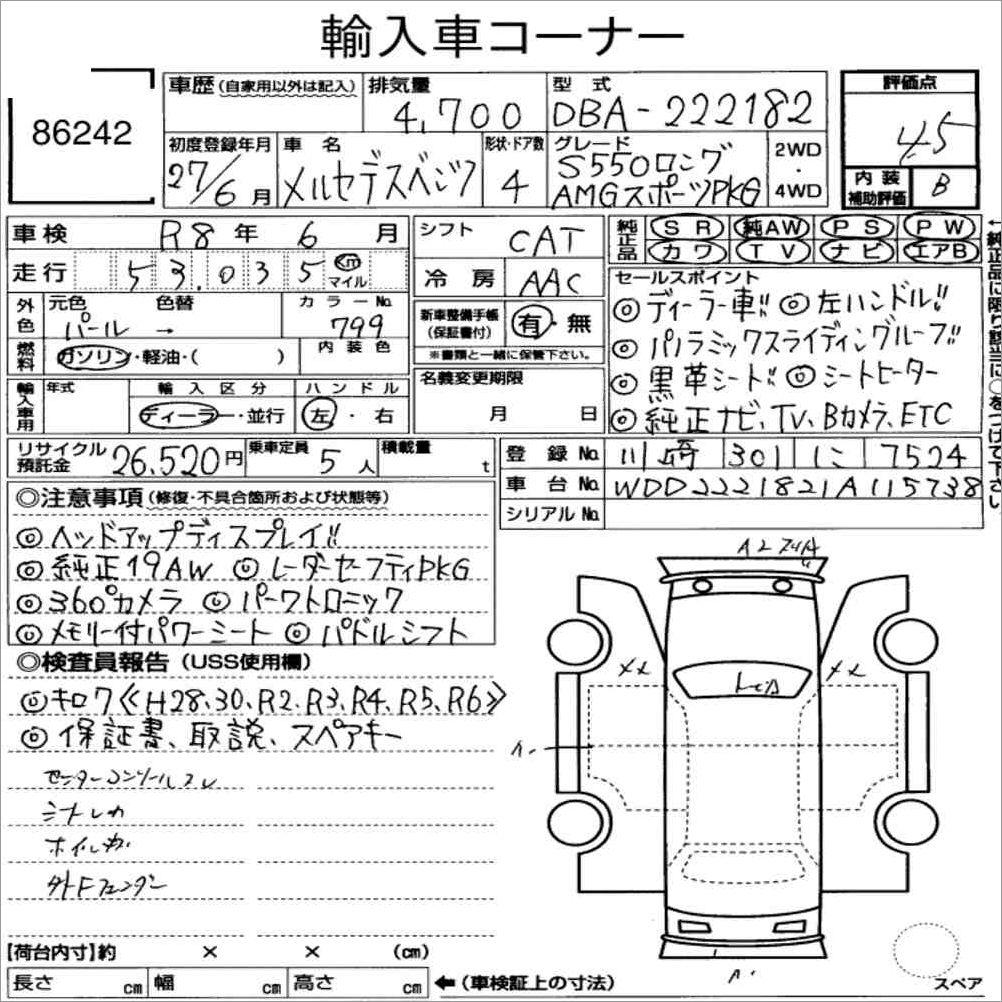 輸入車コーナー
86242
車歴(自家用以外は記入)
排気量
4,700
型式
DBA-222182
評価点
4.5
初度登録年月
27/6月
車名
メルセデスベンツ
形状・ドア数
4
グレード
S550ロング
AMGスポーツPKG
2WD
・
4WD
内装
補助評価
B
車検 R8年 6月
走行 53,035 km
マイル
シフト
CAT
冷房 AAC
純正品
SR 純AW PS PW
カワ TV ナビ エアB
←純正品に限り該当に○をつけて下さい
外色
元色 色替
パール →
カラーNo.
799
燃料
ガソリン・軽油・( )
内装色
新車整備手帳
(保証書付)
有・無
※書類と一緒に保管下さい。
セールスポイント
◎ディーラー車!! ◎左ハンドル!!
◎パノラミックスライディングルーフ!!
◎黒革シート!! ◎シートヒーター
◎純正ナビ、TV、Bカメラ、ETC
輸入車用
年式
輸入区分
ディーラー・並行
ハンドル
左・右
名義変更期限
月 日
リサイクル
預託金
26,520円
乗車定員
5人
積載量
t
登録No. 川崎 301 に 7524
車台No. WDD2221821A115738
シリアルNo.
◎注意事項(修復・不具合箇所および状態等)
◎ヘッドアップディスプレイ!!
◎純正19AW ◎レーダーセーフティPKG
◎360°カメラ ◎パークトロニック
◎メモリー付パワーシート ◎パドルシフト
◎検査員報告(USS使用欄)
◎キロク≪H28.30、R2、R3、R4、R5、R6≫
◎保証書、取説、スペアキー
センターコンソールスレ
シートレカ
ホイルガ
A2
XX
XX
【荷台内寸】約 × × (cm)
長さ cm 幅 cm 高さ cm ←(車検証上の寸法)
スペア